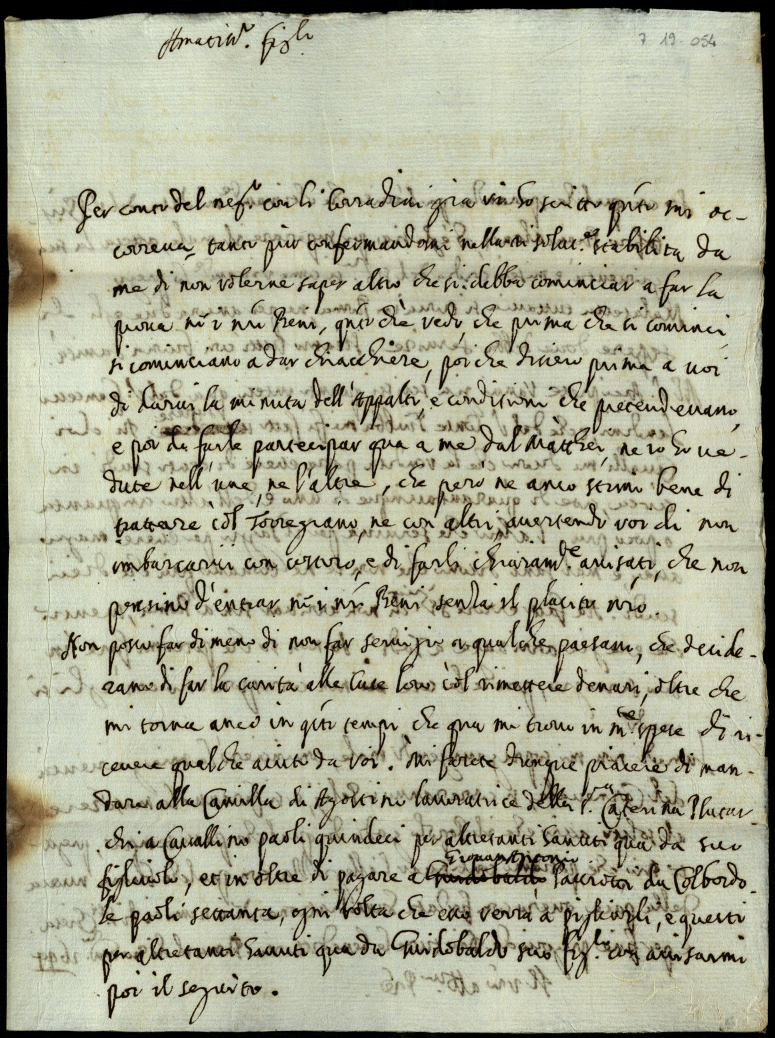 Amatis.mi figli
7 19 054
Per conto del neg.o con li Corradini già vi ho scritto q.to mi oc-
correva, tanto più confermandomi nella risolut.e stabilita da
me di non volerne saper altro che si debba cominciar a far la
prova n.ri Beni, che vedo, che prima che si cominci
si cominciano a dar chiacchiere, poiche dissero prima a voi
di darvi la minuta dell'Appalto, e condizioni che pretendevano,
e poi di farle partecipar qua a me dal Matthei, ne io ho ve-
dute nell'una, ne l'altre, che però ne anco stimo bene di
trattare col Torregiano, ne con altri, avertendo voi di non
imbarcarvi con costoro, e di farli chiaram.te avisati, che non
pensino d'entrar n.ri Beni senza il placito n.ro.
Non posso far di meno di non far servizio a qualche paesano, che deside-
rano di far la carità alle Case loro col rimettere denari, oltre che
mi torna anco in q.ti tempi che qua mi trovo in m.te spese di ri-
cevere qualche aiuto da voi. Mi farete dunque piacere di man-
dare alla Camilla di Agostino lavoratrice della S.ra Caterina Plutar-
chi a Cavallino paoli quindeci per altretanti havuti qua da suo
figliuolo, et in oltre di pagare a Giovan Antonio da Colbordo-
lo paoli settanta, ogni volta che esso verrà a pigliargli, e questi
per altretanti havuti qua da Guidobaldo suo fig.lo con avisarmi
poi il seguito.